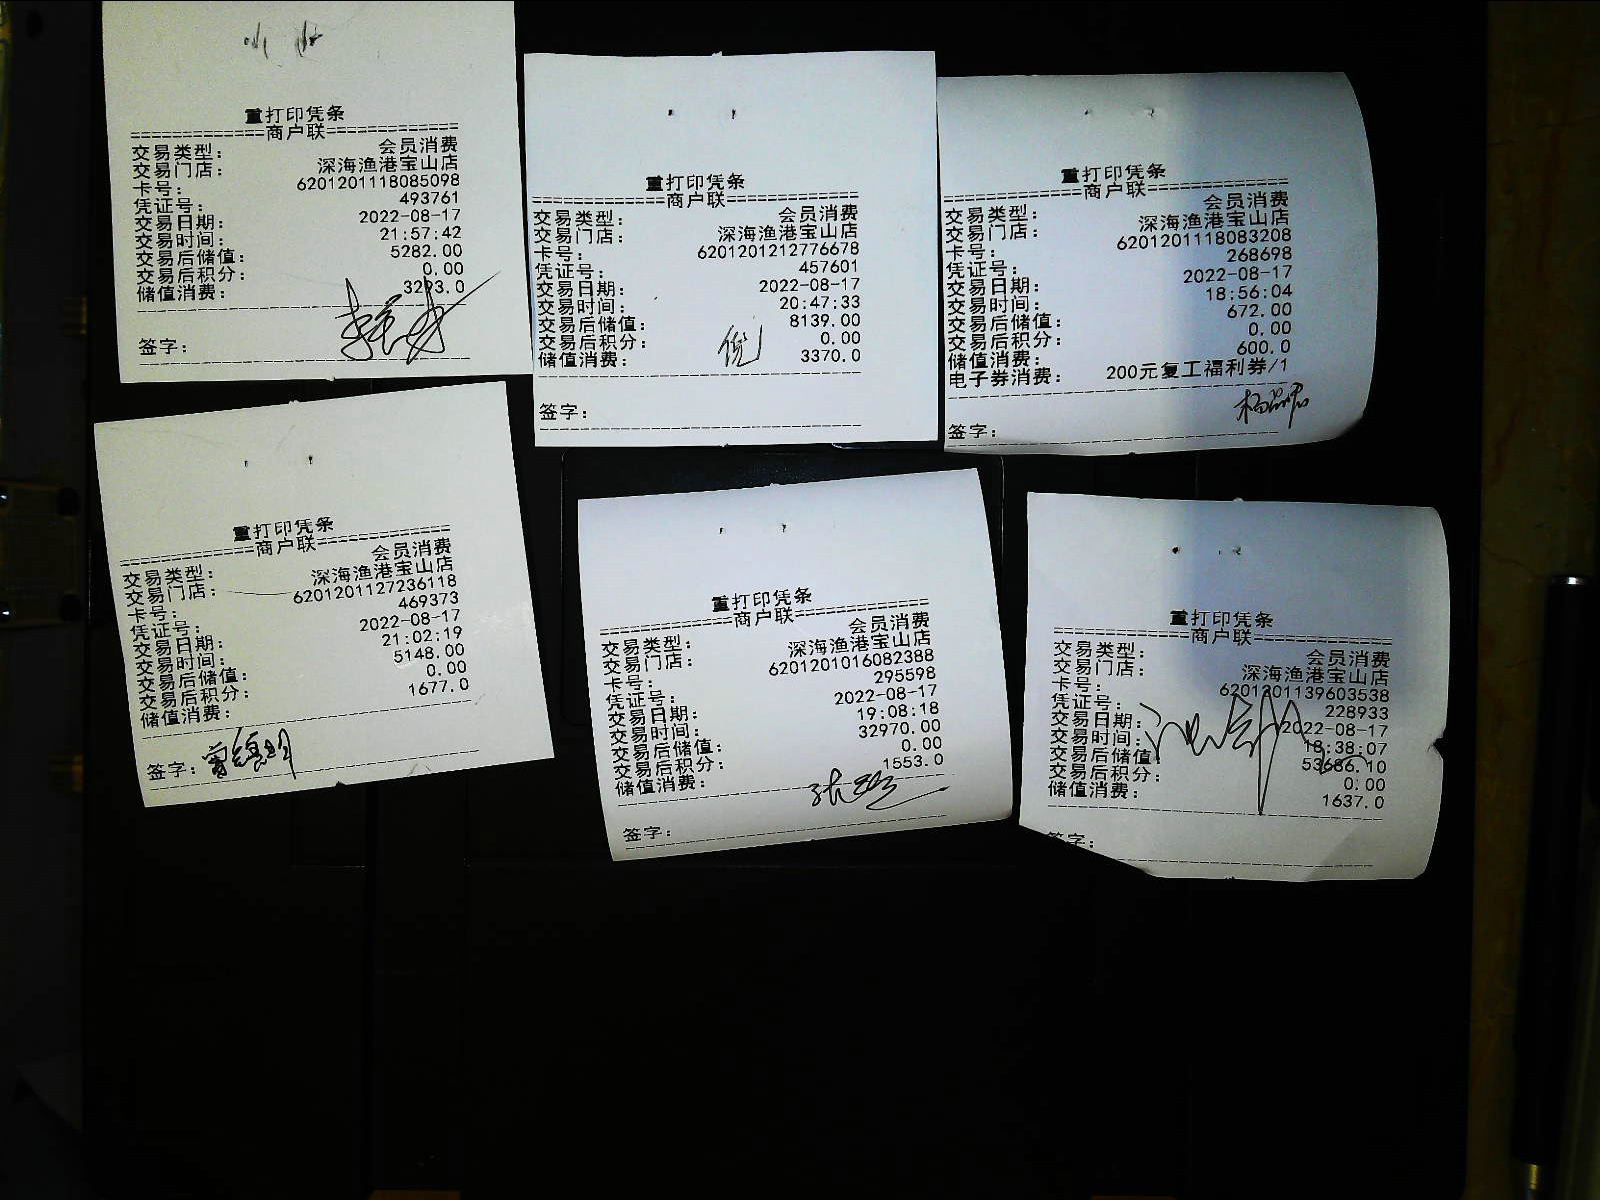 重打印凭条
=============商户联=============
交易类型： 会员消费
交易门店： 深海渔港宝山店
卡号： 6201201118085098
凭证号： 493761
交易日期： 2022-08-17
交易时间： 21:57:42
交易后储值： 5282.00
交易后积分： 0.00
储值消费： 3293.0
签字：
重打印凭条
=============商户联=============
交易类型： 会员消费
交易门店： 深海渔港宝山店
卡号： 6201201212776678
凭证号： 457601
交易日期： 2022-08-17
交易时间： 20:47:33
交易后储值： 8139.00
交易后积分： 0.00
储值消费： 3370.0
倪
签字：
重打印凭条
=============商户联=============
交易类型： 会员消费
交易门店： 深海渔港宝山店
卡号： 6201201118083208
凭证号： 268698
交易日期： 2022-08-17
交易时间： 18:56:04
交易后储值： 672.00
交易后积分： 0.00
储值消费： 600.0
电子券消费： 200元复工福利券/1
签字：
重打印凭条
=============商户联=============
交易类型： 会员消费
交易门店： 深海渔港宝山店
卡号： 6201201127236118
凭证号： 469373
交易日期： 2022-08-17
交易时间： 21:02:19
交易后储值： 5148.00
交易后积分： 0.00
储值消费： 1677.0
签字：
重打印凭条
=============商户联=============
交易类型： 会员消费
交易门店： 深海渔港宝山店
卡号： 6201201016082388
凭证号： 295598
交易日期： 2022-08-17
交易时间： 19:08:18
交易后储值： 32970.00
交易后积分： 0.00
储值消费： 1553.0
签字：
重打印凭条
=============商户联=============
交易类型： 会员消费
交易门店： 深海渔港宝山店
卡号： 6201201139603538
凭证号： 228933
交易日期： 2022-08-17
交易时间： 18:38:07
交易后储值： 53686.10
交易后积分： 0.00
储值消费： 1637.0
签字：